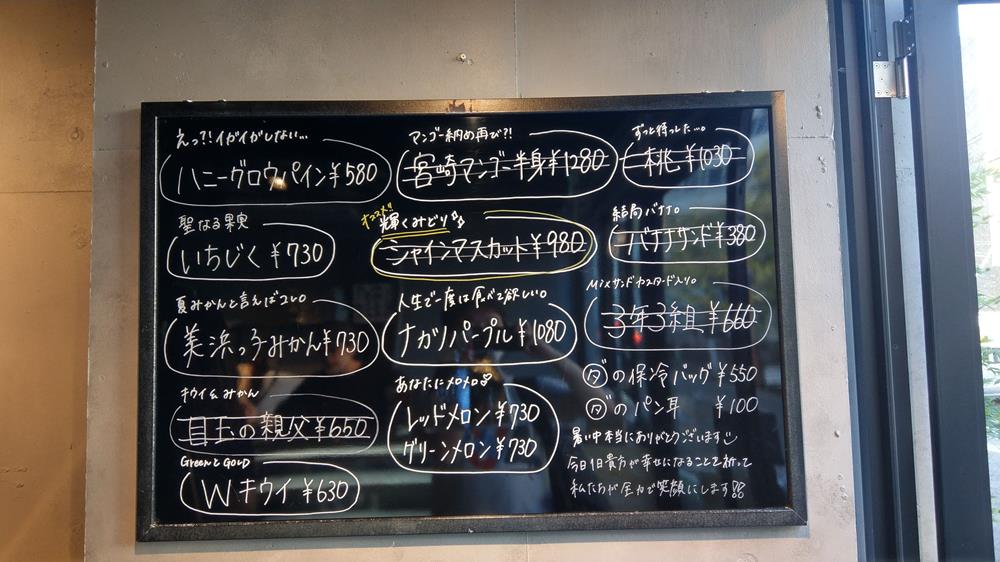 えっ?!イガイガしない…
ハニーグロウパイン¥580
聖なる果実
いちじく¥730
夏みかんと言えばコレ。
美浜っ子みかん¥730
キウイ&みかん
目玉の親父¥650
GreenとGOLD
Wキウイ¥630
マンゴー納め再び?!
宮崎マンゴー半身¥1280
オススメ!!
輝くみどり
シャインマスカット¥980
人生で一度は食べて欲しい。
ナガノパープル¥1080
あなたにメロメロ
レッドメロン¥730
グリーンメロン¥730
ずっと待ってした…。
桃¥1030
結局バナナ。
バナナサンド¥380
Mixサンドカスタード入り。
3年3組¥660
ダの保冷バッグ¥550
ダのパン耳 ¥100
暑い中本当にありがとうございます
今日1日貴方が幸せになることを祈って
私たちが全力で笑顔にします!!